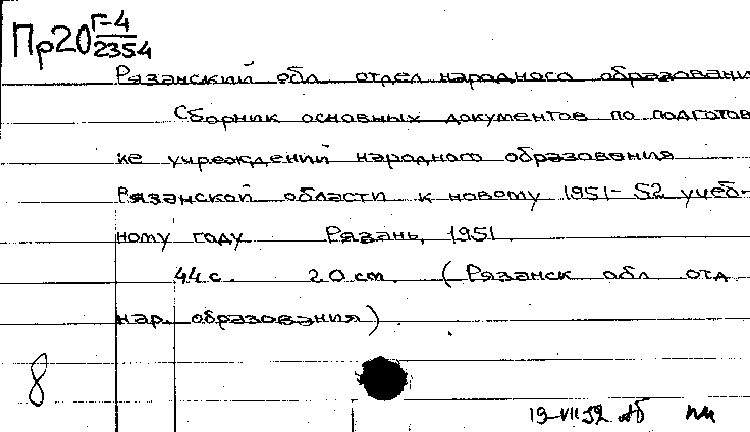 Пр20 Г-4/2354
Рязанский обл отдел народного образовани
Сборник основных документов по подготов
ке учреждений народного образования
Рязанской области к новому 1951-52 учеб-
ному году Рязань, 1951.
44 с. 20 cm. (Рязанск обл отд
нар. образования)
8
19-VII 52